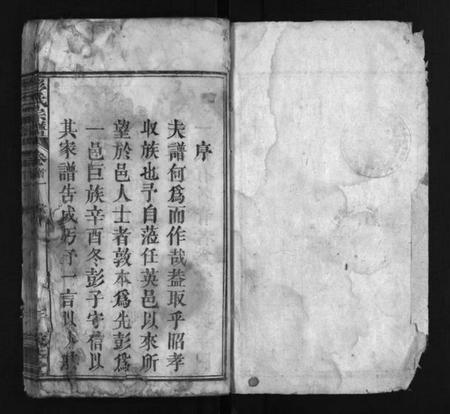 序
夫譜何爲而作哉葢取乎昭孝
収族也予自蒞任英邑以來所
望於邑人士者敦本爲先彭爲
一邑巨族辛酉冬彭子守信以
其家譜告成丐予一言以
彭氏宗譜